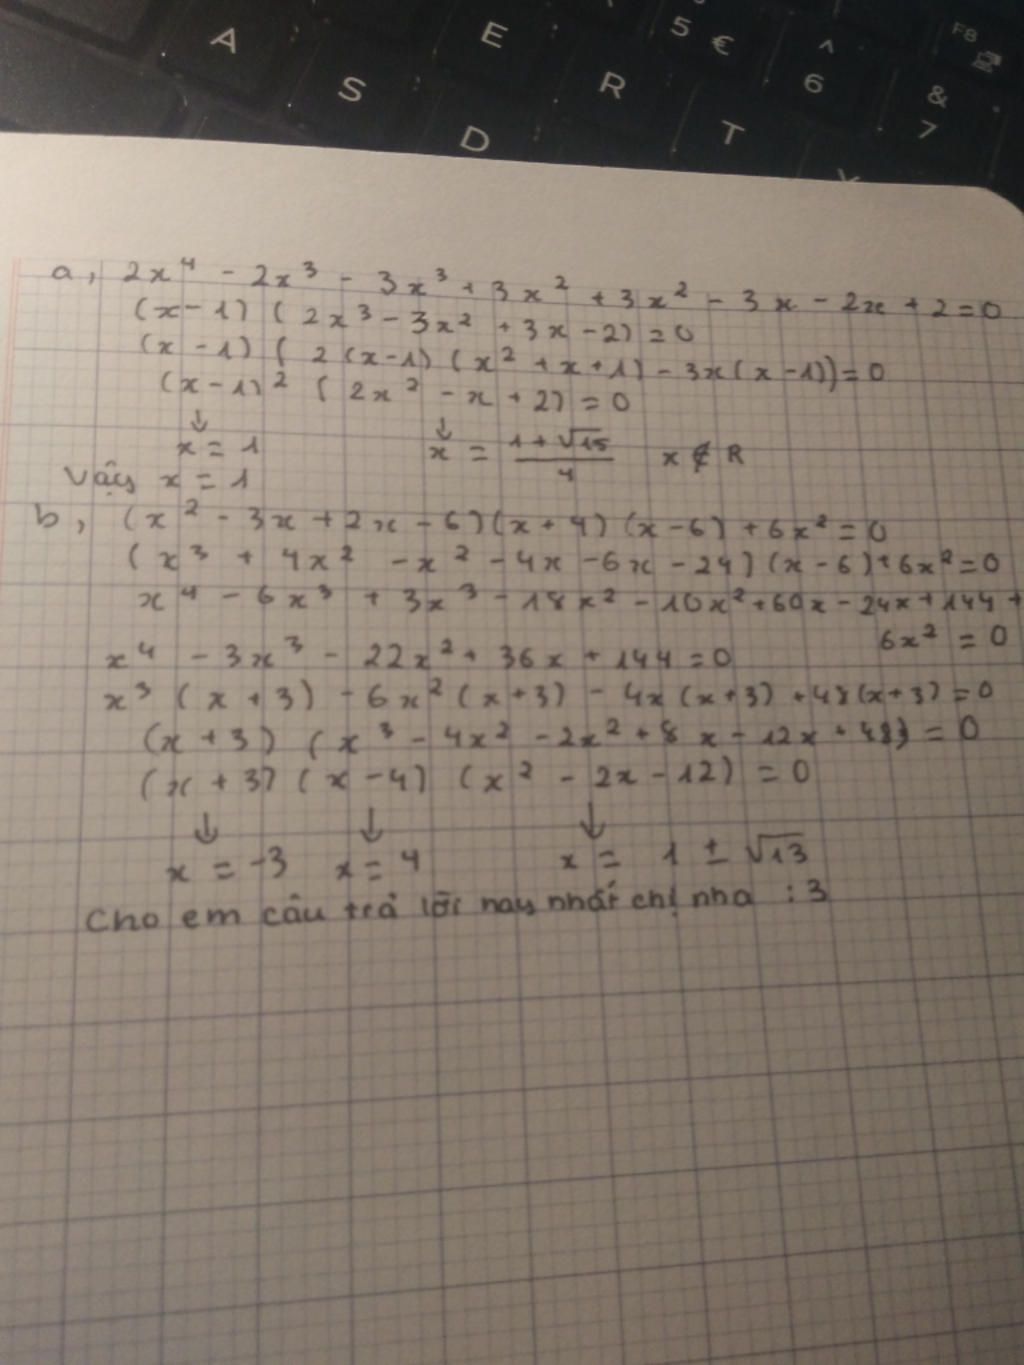 A
E
5 €
^
6
F8
S
R
&
7
D
T
a, 2x⁴ - 2x³ - 3x³ + 3x² + 3x² - 3x - 2x + 2 = 0
(x - 1) ( 2x³ - 3x² + 3x - 2) = 0
(x - 1) ( 2 (x - 1) (x² + x + 1) - 3x (x - 1)) = 0
(x - 1)² ( 2x² - x + 2) = 0
↓ ↓
x = 1 x = (1 + √15)/4 x ∉ R
Vậy x = 1
b, (x² - 3x + 2x - 6) (x + 4) (x - 6) + 6x² = 0
(x³ + 4x² - x² - 4x - 6x - 24) (x - 6) + 6x² = 0
x⁴ - 6x³ + 3x³ - 18x² - 10x² + 60x - 24x + 144 +
6x² = 0
x⁴ - 3x³ - 22x² + 36x + 144 = 0
x³ (x + 3) - 6x² (x + 3) - 4x (x + 3) + 48 (x + 3) = 0
(x + 3) (x³ - 4x² - 2x² + 8x - 12x + 48) = 0
(x + 3) (x - 4) (x² - 2x - 12) = 0
↓ ↓ ↓
x = -3 x = 4 x = 1 ± √13
Cho em câu trả lời hay nhất chị nha :3